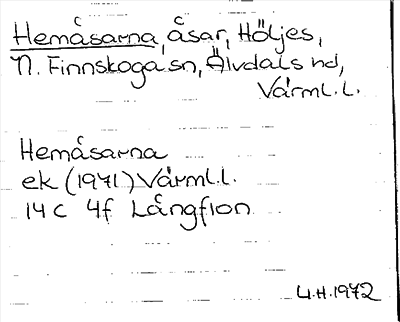 Hemåsarna, åsar, Höljes,
N. Finnskoga sn, Älvdals hd,
Värml. l.
Hemåsarna
ek (1971) Värml. l.
14 C 4f Långflon
L.H. 1972